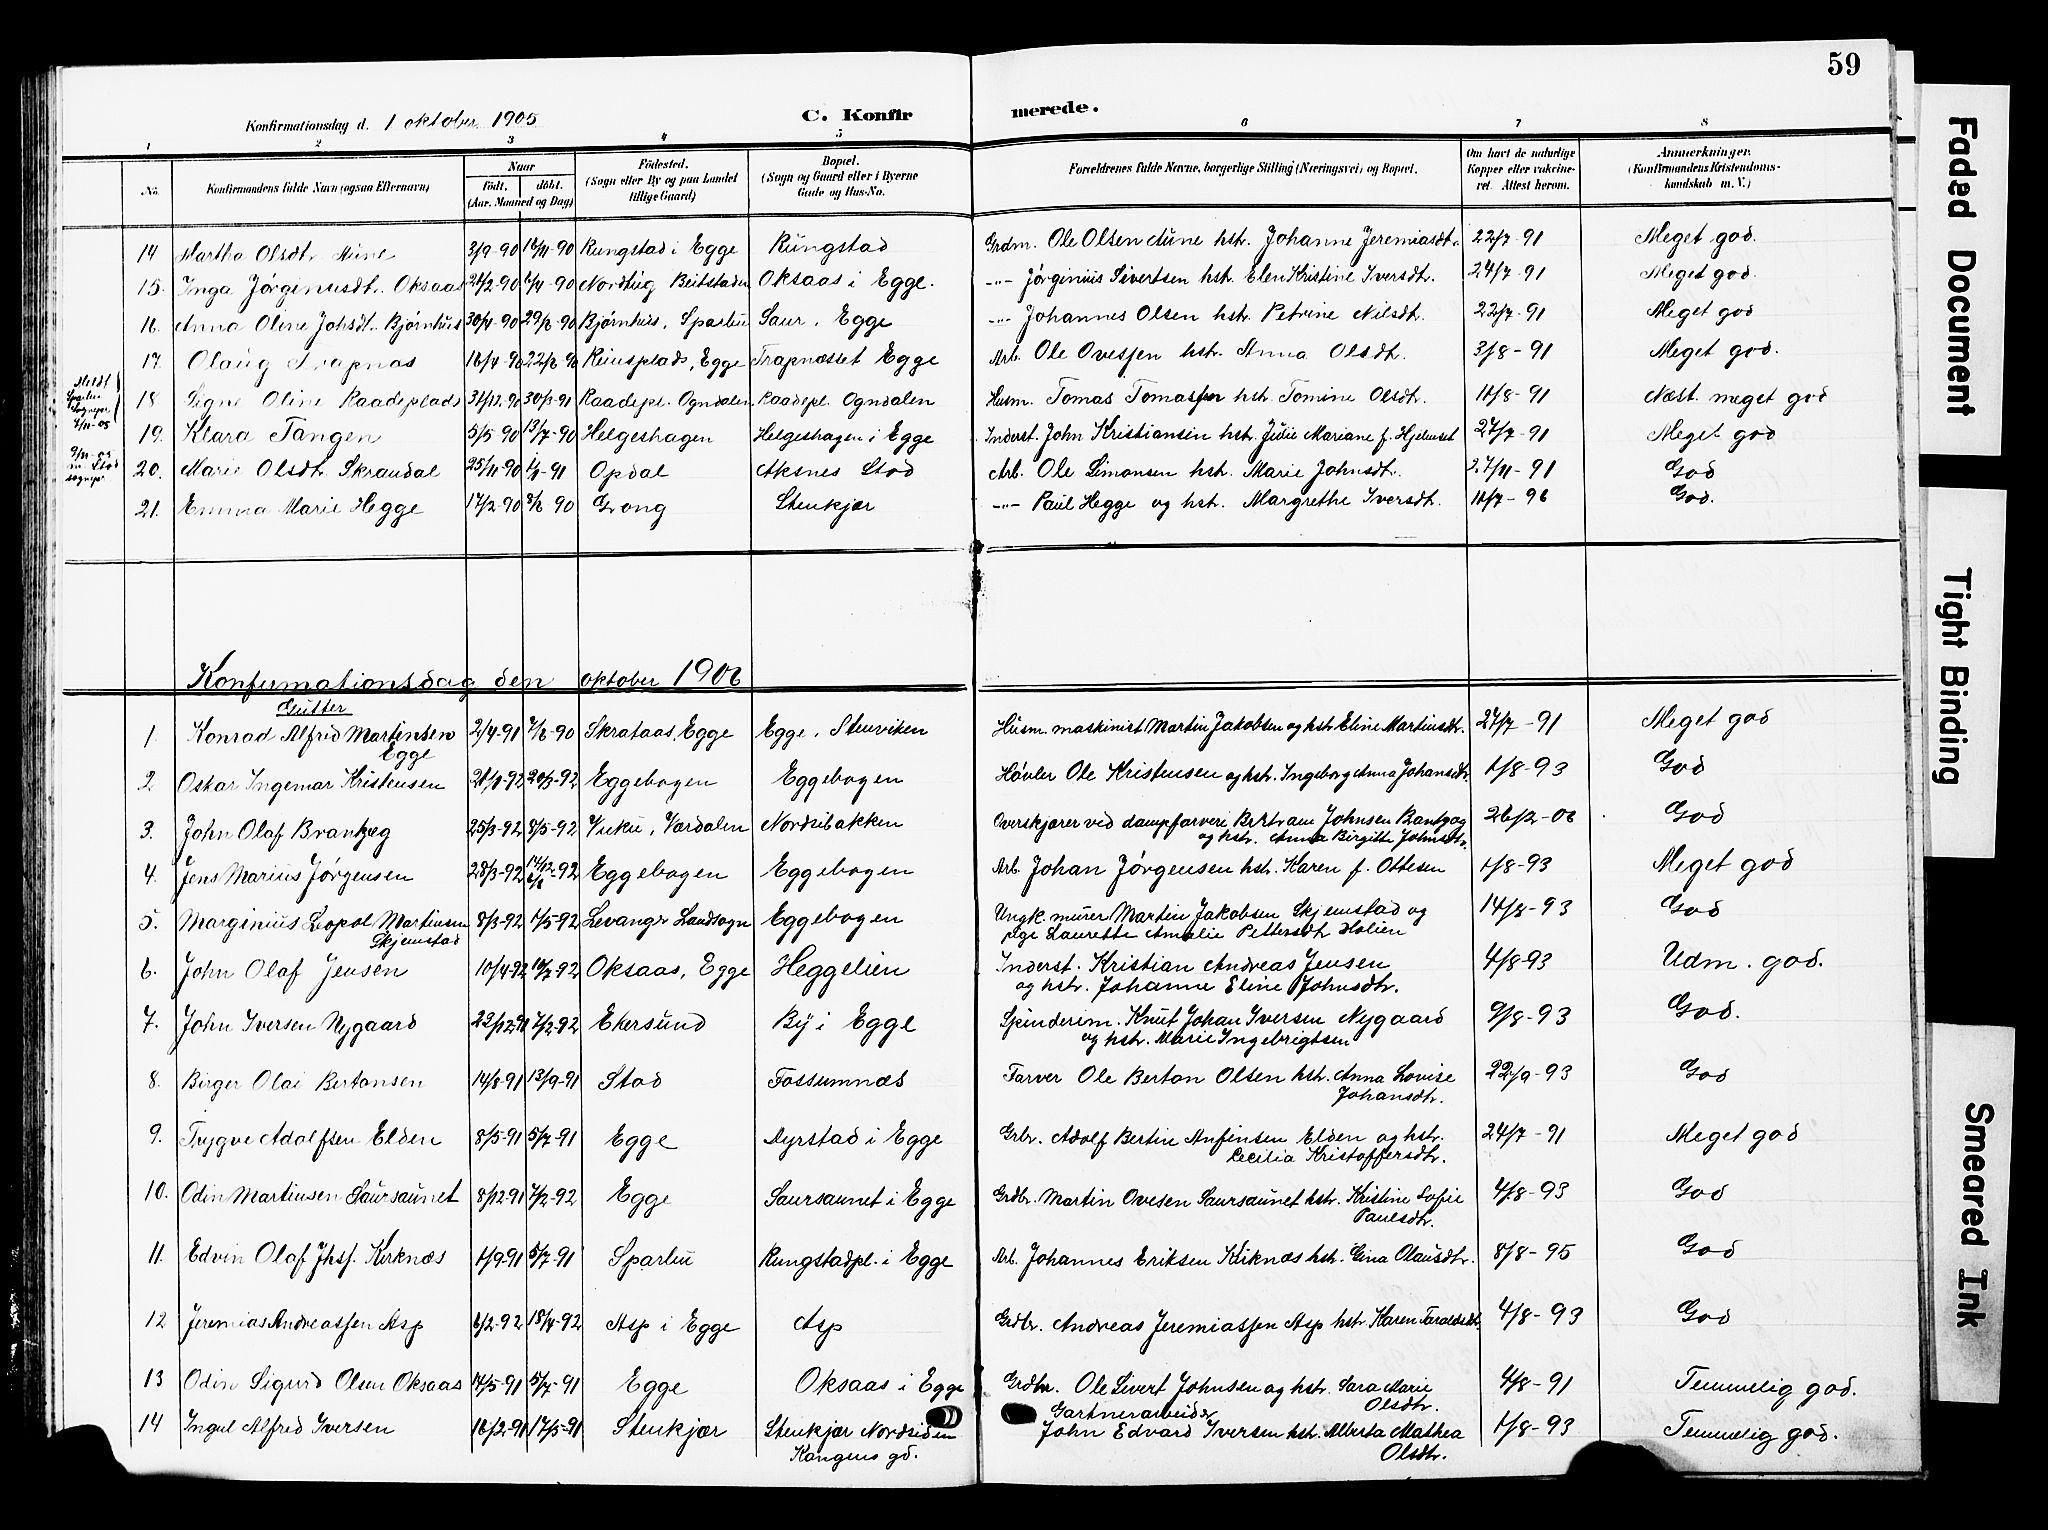 59
Konfirmationsdag d. 1 oktober 1905 C. Konfirmerede.
1 2 3 4 5 6 7 8
No. Konfirmandens fulde Navn (ogsaa Efternavn) Naar født, døbt. (Aar, Maaned og Dag) Fødested. (Sogn eller By og paa Landet tillige Gaard) Bopæl. (Sogn og Gaard eller i Byerne Gade og Hus-No. Forældrenes fulde Navne, borgerlige Stilling (Næringsvei) og Bopæl. Om havt de naturlige Kopper eller vakcineret. Attest herom. Anmerkninger. (Konfirmandens Kristendomskundskab m. V.)
14 Martha Olsdtr. 3/9-90 16/11-90 Rungstad i Egge Rungstad Grdm. Ole Olsen Aune hstr. Johanne Jeremiasdtr. 22/7-91 Meget god.
15. Inga Jørginusdt. Oksaas -90 6/4-90 Nordtug Beitstaden Oksaas i Egge. -"- Jørginius Sivertsen hstr. Elen Kristine Iversdtr. 24/7-91 Meget god.
16. Anna Oline Johsdt. Bjørnhus 30/4-90 29/6 90 Bjørnhus, Sparbu Saur, Egge -"- Johannes Olsen hstr. Petrine Nilsdtr. 22/7-91 Meget god
17. Olaug Trapnas 16/4-90 22/6 90 Reinsplads, Egge Trapnæsset Egge Arb. Ole Ovesen hstr. Anna Olsdtr. 3/8-91 Meget god.
Meldt Sparbu Sognepr. 4/11-05
18 Signe Oline Raadeplads 31/12-90 30/1-91 Raadepl. Ogndalen Raadepl. Ogndalen Husm. Tomas Tomassen hstr. Tomine Olsdtr. 11/8-91 Næst. meget god
19. Klara Tangen 5/5-90 13/7-90 Helgeshagen Helgeshagen i Egge Inderst. John Kristiansen hstr. Julie Mariane f. 27/7-91 Meget god
9/11-05 m. Stod sognepr
20. Marie Olsdtr. Skraudal 25/11-90 -91 Opdal Aksnes Stod Arb. Ole Simonsen hstr. Marie Johnsdtr. 27/11-91 God
21. Emma Marie Hegge 17/2-90 8/6 90 Grong Stenkjær -"- Paul Hegge og hstr. Margrethe Iversdtr. 11/7-96 God.
Konfirmationsdag den oktober 1906
Gutter
1. Konrad Alfred Martinsen Egge 2/4-91 7/6-90 Skrataas, Egge Egge, Stenviken Husm. maskinist Martin Jakobsen og hstr. Eline Martinsdtr. 27/7-91 Meget god
2 Oskar Ingemar Kristensen -92 20/3-92 Eggebogen Eggebogen Høvler Ole Kristensen og hstr. Ingeborg Anna Johansdtr. 1/8-93 God
3. John Olaf Brantzeg 25/3-92 8/5-92 Vuku, Værdalen Nordsibakken Overskjærer ved dampfarveri Bertram Johnsen
og hstr. Anna Birgitte Johnsdtr. 26/2-06 God
4. Jens Marius Jørgensen 28/3-92 17/12 6/6-92 Eggebogen Eggebogen Arb. Johan Jørgensen hstr. Karen f. Ottesen 1/8-93 Meget god
5. Marginius Leopol Martinsen Skjemstad 8/3-92 1/5-92 Levanger Landsogn Eggebogen Ungk. murer Martin Jakobsen Skjemstad og
pige Laurette Amalie Pettersdtr Holien 14/8-93 God
6. John Olaf Jensen 10/4-92 -92 Oksaas, Egge Heggelien Inderst. Kristian Andreas Jensen
og hstr. Johanne Eline Johnsdtr. 4/8-93 Udm. god.
7. John Iversen Nygaard 23/12-91 7/2-92 Ekersund By i Egge Spinderim. Knut Johan Iversen Nygaard
og hstr. Marie Ingebrigtsen 9/8-93 God.
8. Birger Olai Bertansen 14/8-91 13/9-91 Stod Fossumnæs Farver Ole Bertan Olsen hstr. Anna Lovise
Johansdtr. 22/9-93 God
9. Trygve Adolfsen Elden 8/5-91 5/7-91 Egge Dyrstad i Egge Grbr. Adolf Bertin Anfinsen Elden og hstr.
Cecilia Kristoffersdtr. 24/7-91 Meget god
10. Odin Martinsen Saursaunet 8/12-91 7/2-92 Egge Saursaunet i Egge Grdbr. Martin Ovesen Saursaunet hstr. Kristine Sofie
Paulsdtr. 4/8-93 God
11. Edvin Olaf Jhsf. Kirknæs 1/9-91 5/7-91 Sparbu Rungstadpl. i Egge Arb. Johannes Eriksen Kirknæs hstr. Gina Olausdtr. 8/8-95 God
12 Jeremias Andreassen Asp 6/2-92 18/4-92 Asp i Egge Asp Grdbr. Andreas Jeremiassen Asp hstr Karen Taraldsdtr. 4/8-93 God
13 Odin Sigurd Olsen Oksaas 14/5-91 5/7-91 Egge Oksaas i Egge Grdbr. Ole Sivert Johnsen og hstr. Sara Marie
Olsdtr. 4/8-91 Temmelig god.
14 Ingul Alfred Iversen 16/2-91 17/5-91 Stenkjær Stenkjær Nordsiden
Kongens gd. Gartnerarbeider
John Edvard Iversen hstr. Alberta Mathea
Olsdtr. 1/8-93 Temmelig god.
Faded Document
Tight Binding
Smeared Ink